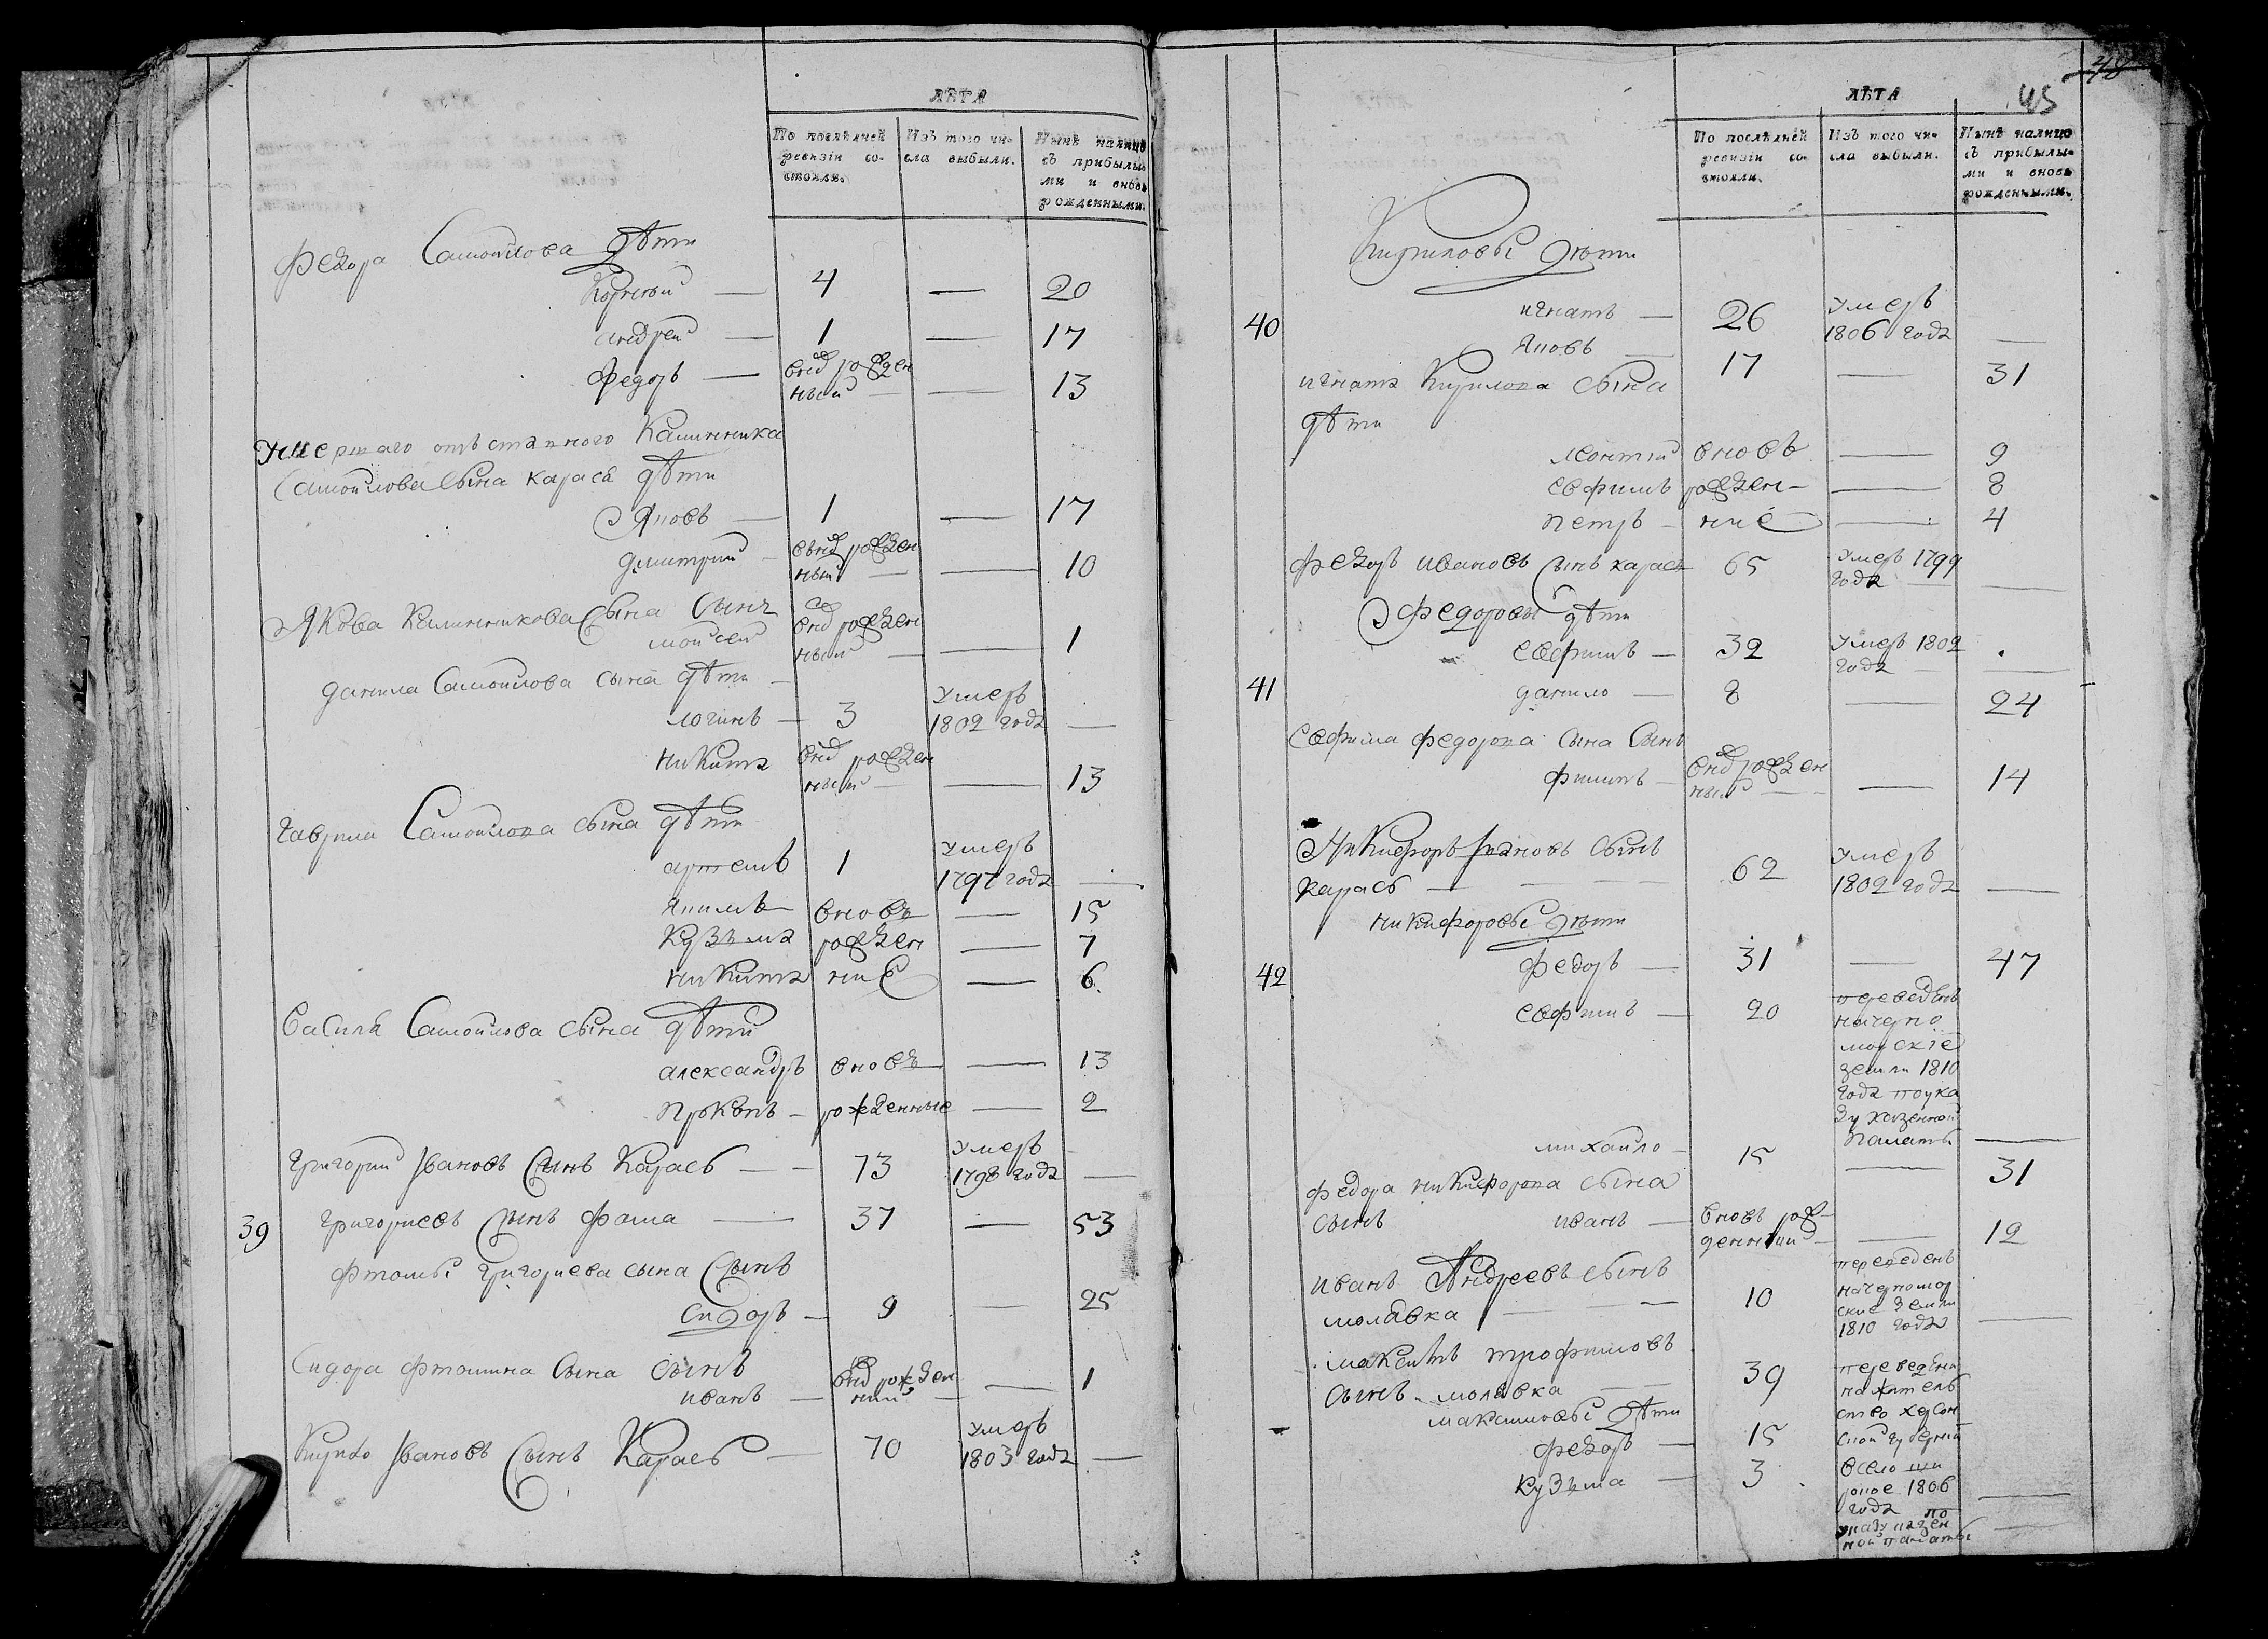 ЛѢТА
По послѣдней ревизіи состояли.
Изъ того числа выбыли.
Нынѣ налицо съ прибылыми и вновь рожденными.
Федора Самойлова дѣти
Корней — 4 — 20
андрей — 1 — 17
Федоръ — внов рожден
ный — — 13
Умершаго отъставного Калинника
Самойлова сына карася дѣти
Яковъ — 1 — 17
дмитрий — внов рожден
ный — — 10
Якова Калинникова сына сынъ
мойсей внов рожден
ный — — 1
данила Самойлова сына дѣти —
логинъ — 3 умеръ
1802 года —
никита внов рожден
ный — — 13
гаврила Самойлова сына дѣти
артемъ 1 умеръ
1797 года —
Якимъ вновъ — 15
Кузъма рожден — 7
никита ние — 6
Василя Самойлова сына дѣти
александръ вновъ — 13
Прокопъ — рожденные — 2
Григорий Ивановъ Сынъ Карась — — 73 умеръ
1798 года —
39 григориевъ сынъ фома — 37 — 53
фтомы григориева сына сынъ
сидоръ — 9 — 25
Сидора фтомина сына сынъ
иванъ — внов рожден
ний — — 1
Кирило Ивановъ Сынъ Карась — 70 умеръ
1803 года —
48
45
ЛѢТА
По послѣдней ревизіи состояли.
Изъ того числа выбыли.
Нынѣ налицо съ прибылыми и вновь рожденными.
Кириловы дѣти
40 игнатъ — 26 умеръ
1806 года —
Яковъ — 17 — 31
игната Кирилова сына
дѣти
леонтий вновъ — 9
евфимъ рожден — — 8
петръ — ние — 4
Федоръ ивановъ сынъ карась 65 умеръ 1799
года —
федоровы дѣти
евфимъ — 32 умеръ 1802
года —
41 данило — 8 — 24
Евфима федорова сына сынъ
филипъ — внов рожден
ный — — 14
Никифоръ Ивановъ сынъ
карась — 62 умеръ
1802 года —
никифоровы дѣти
42 федоръ — 31 — 47
евфимъ — 20 переведенъ
на черно
морские
земли 1810
года по ука
зу казенной
палаты —
михайло — 15 — 31
федора никифорова сына
сынъ иванъ — вновъ рож
денний — — 12
иванъ Андреевъ сынъ
молявка — 10 переведенъ
на черномор
ские земли
1810 года —
максимъ трофимовъ
сынъ молявка — 39 переведени
на жителъ
ство херсон
ской губернии
максимовы дѣти
федоръ — 15
кузъма — 3
в село
1806
года по
указу казен
ной палаты